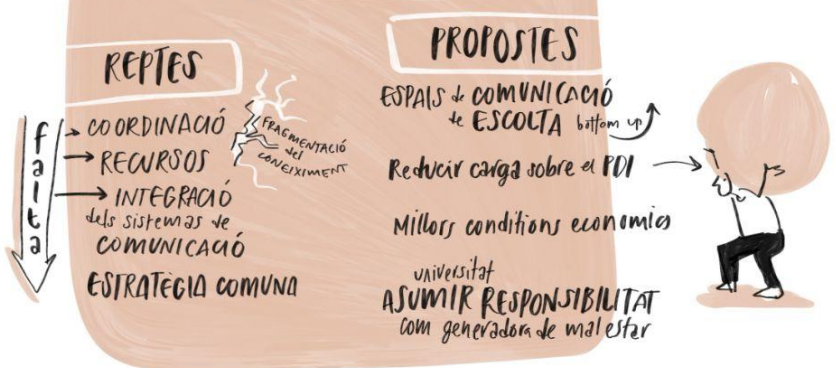 REPTES
falta
COORDINACIÓ
RECURSOS
INTEGRACIÓ
dels sistemas de
COMUNICACIÓ
ESTRATÈGIA COMUNA
FRAGMENTACIÓ
del
CONEIXIMENT
PROPOSTES
ESPAIS de COMUNICACIÓ
de ESCOLTA bottom up
Reducir carga sobre el PDI
Millors conditions economics
universitat
ASUMIR RESPONSIBILITAT
com generadora de mal estar